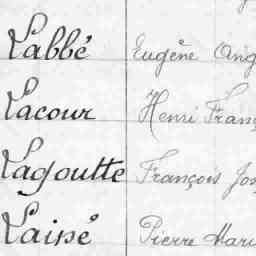 Labbé Eugène Ang
Lacour Henri Franç
Lagoutte François Jos
Lainé Pierre Mari